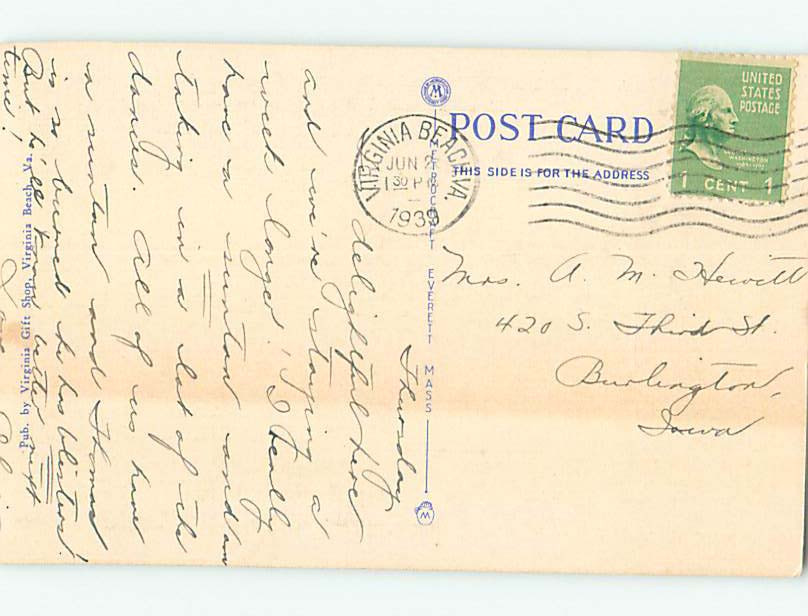 POST CARD
THIS SIDE IS FOR THE ADDRESS
UNITED
STATES
POSTAGE
WASHINGTON
1 CENT 1
VIRGINIA BEACH VA.
JUN 2
1 30 P
1939
METROCRAFT EVERETT MASS
Mrs. A. M. Hewitt
420 S. Third St.
Burlington,
Iowa
Thursday
delightful here
and we're staying a
week longer! I really
have a suntan and am
taking in a lot of the
dances. All of us have
a suntan and Thomas
is so burned he has blisters!
But he'll be better next
time!
Love
Pub. by Virginia Gift Shop, Virginia Beach, Va.